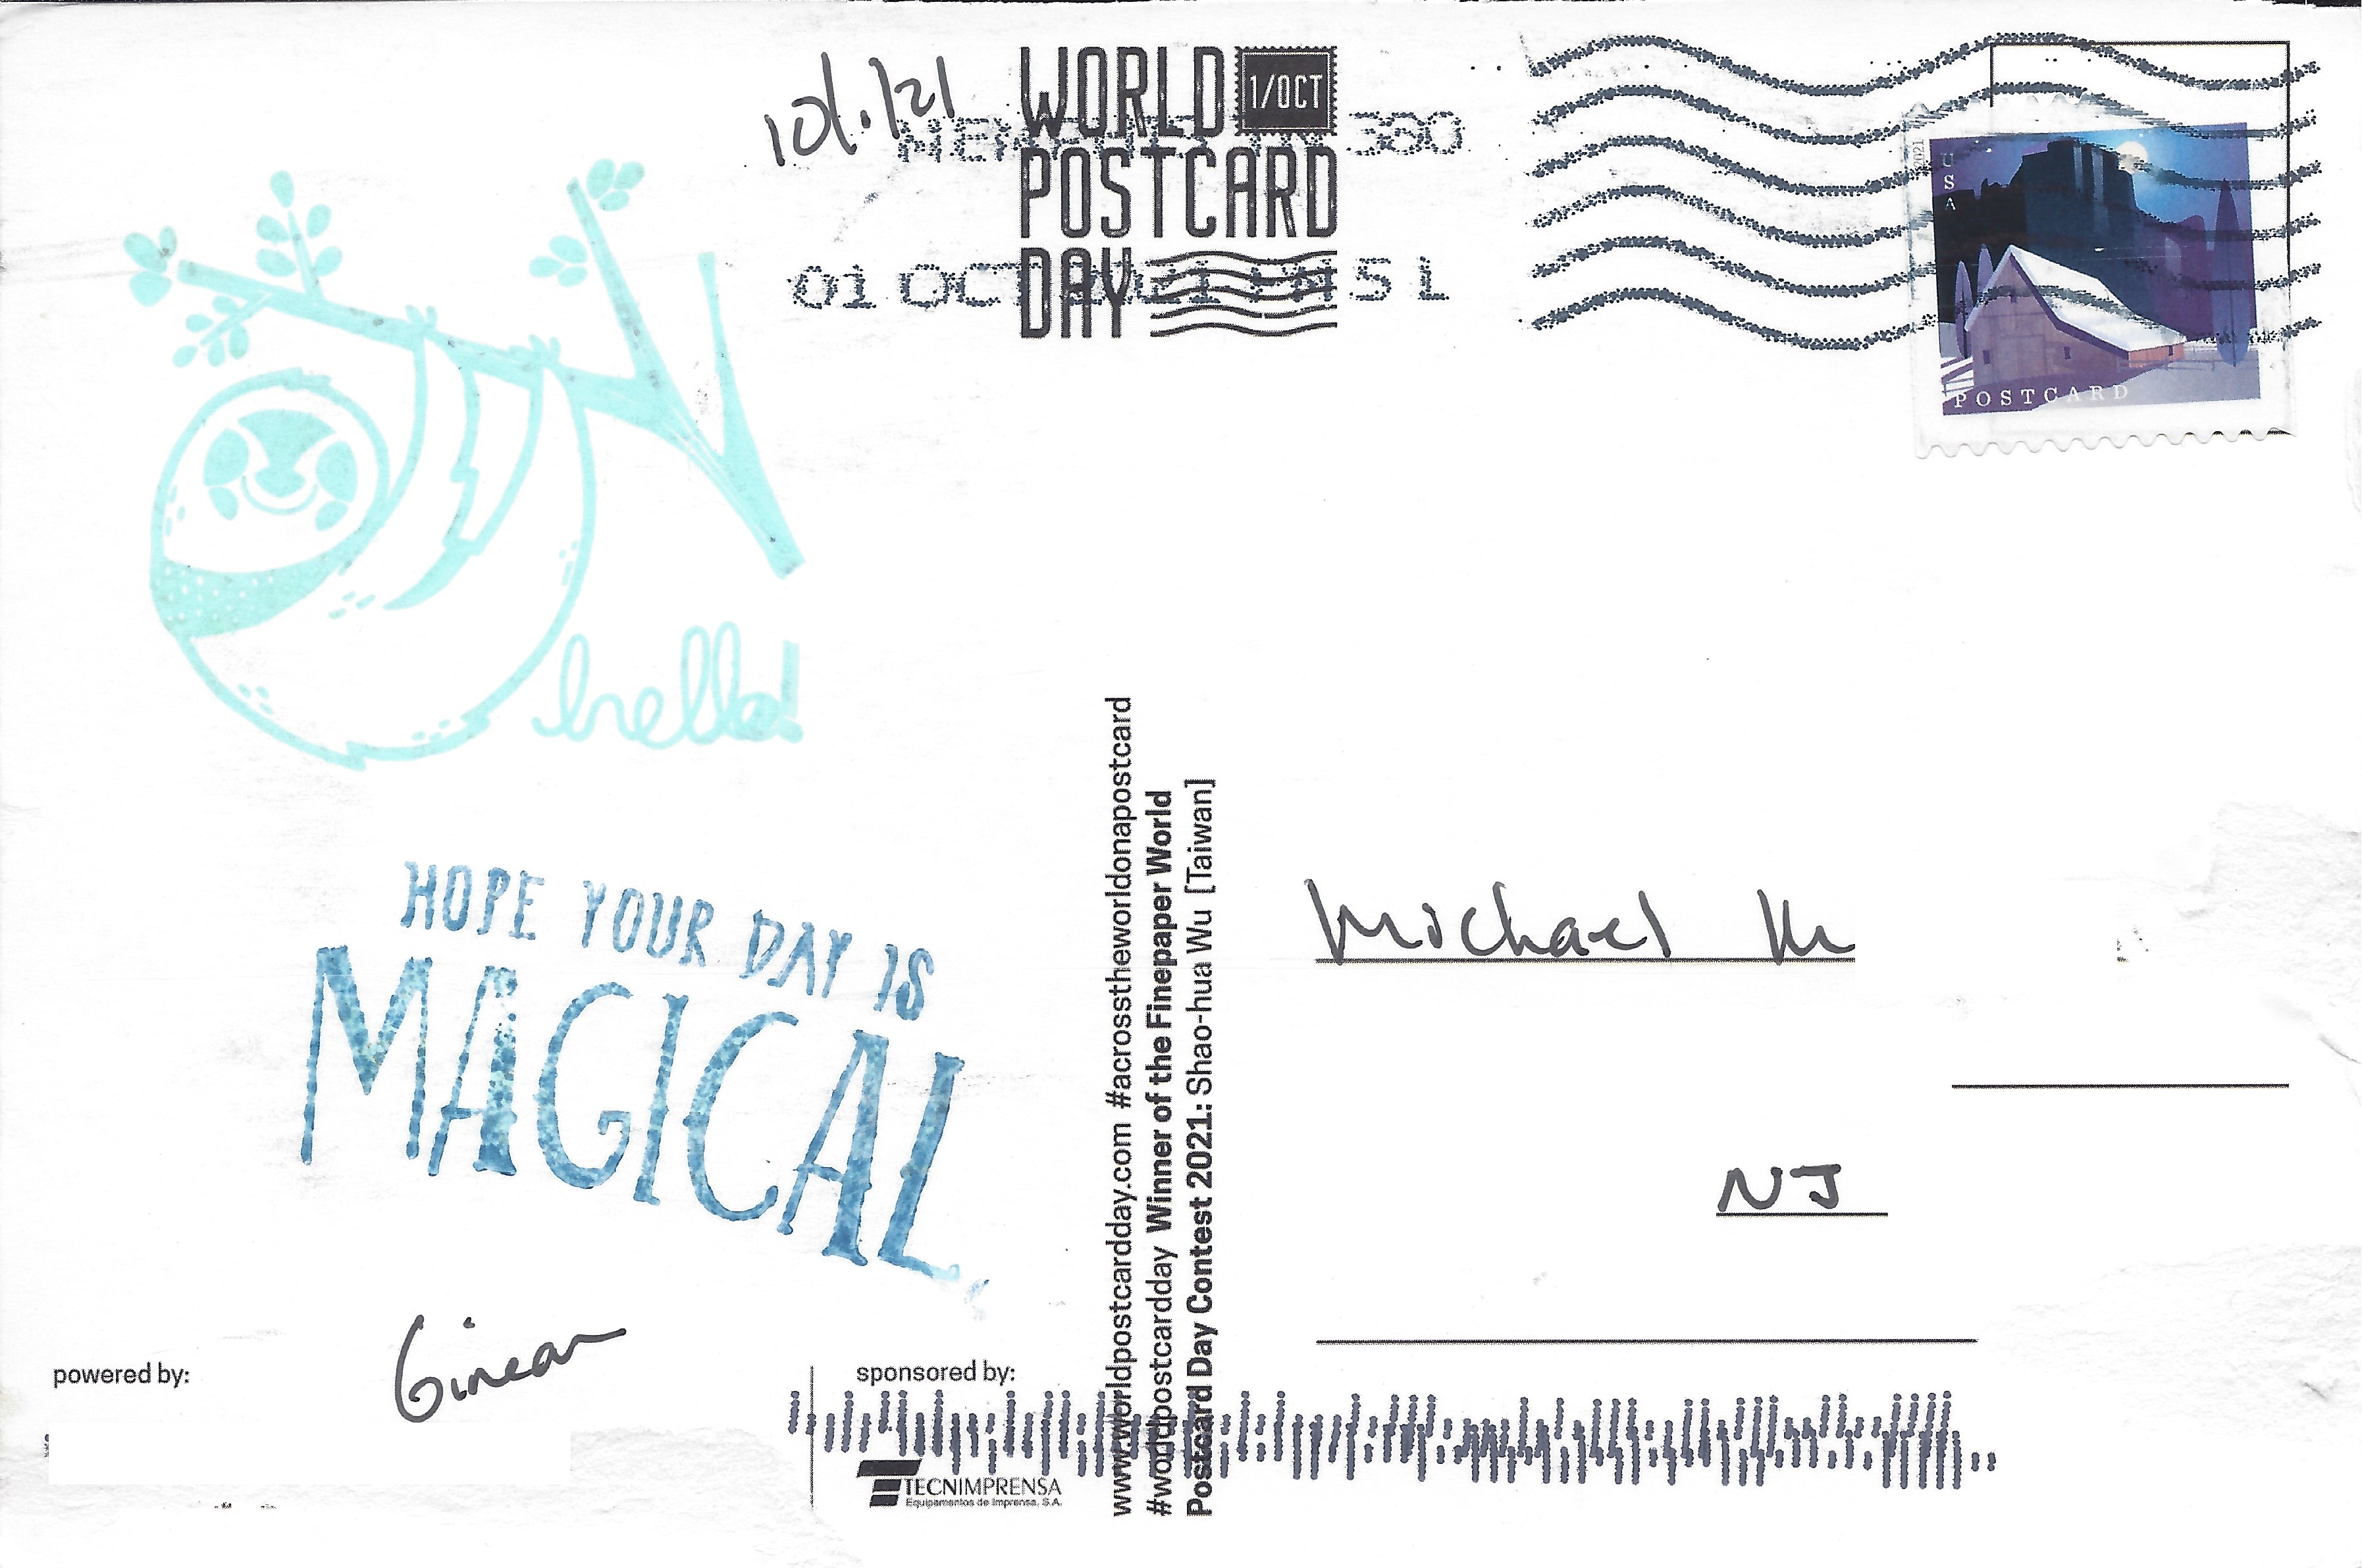 10/1/21
WORLD 1/OCT
POSTCARD
DAY
380
01 OCT 2021 PM 5 L
2021
USA
POSTCARD
hello!
HOPE YOUR DAY IS
MAGICAL.
Ginean
powered by:
sponsored by:
TECNIMPRENSA
Equipamentos de Imprensa, S.A.
www.worldpostcardday.com #acrosstheworldonapostcard
#worldpostcardday Winner of the Finepaper World
Postcard Day Contest 2021: Shao-hua Wu [Taiwan]
Michael M
NJ